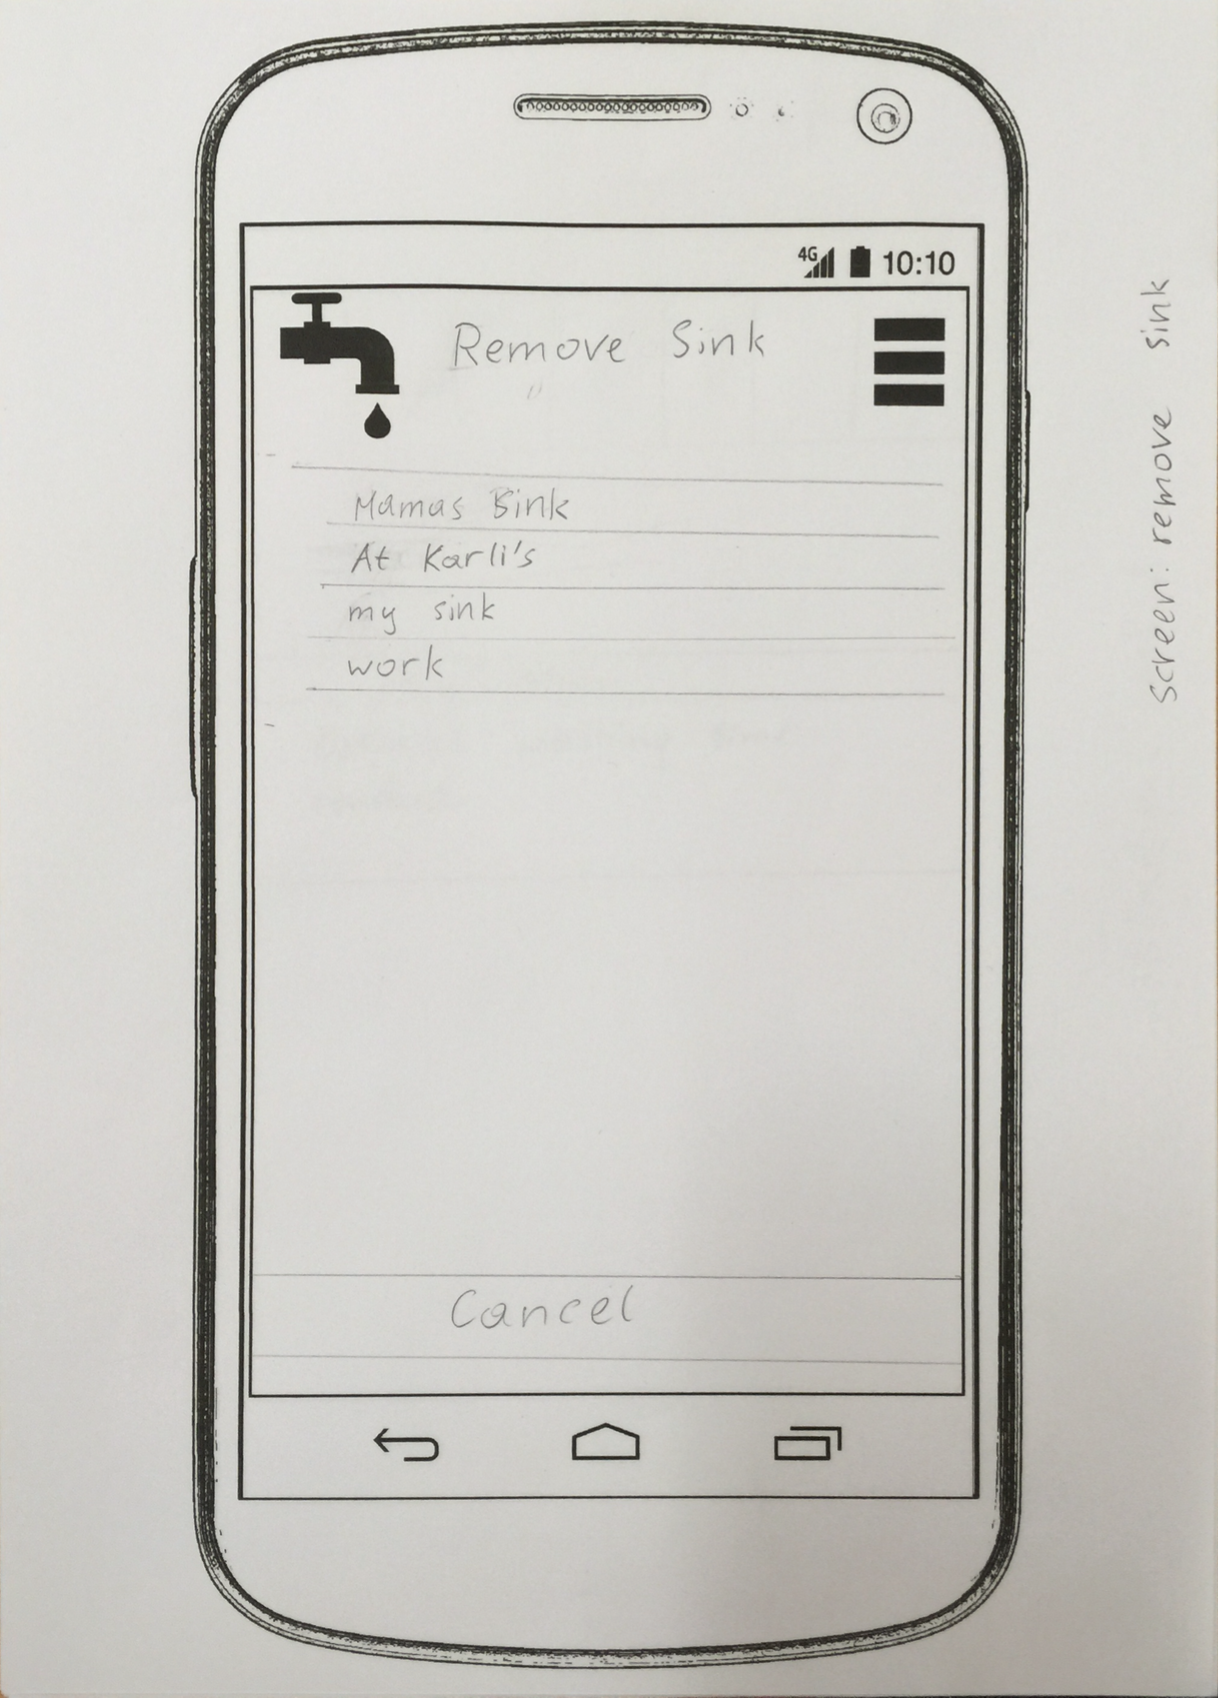 4G 10:10
Remove Sink
Mamas Sink
At Karli's
my sink
work
Cancel
Screen: remove sink